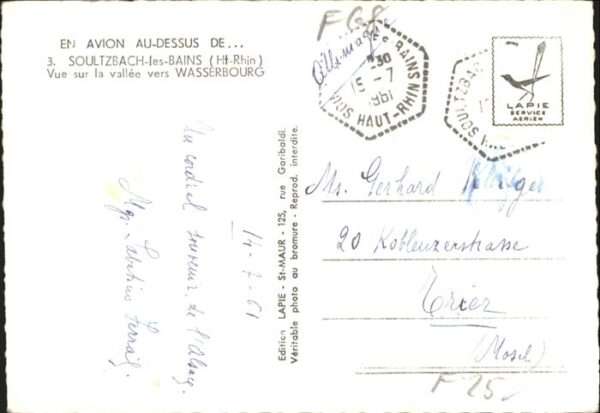 EN AVION AU-DESSUS DE...
3. SOULTZBACH-les-BAINS (Ht-Rhin)
Vue sur la vallée vers WASSERBOURG
14-7-61
Un cordial souvenir de l'Alsace.
Edition LAPIE - St-MAUR - 125, rue Garibaldi.
Véritable photo au bromure - Reprod. interdite.
BAINS
30
15-7
1961
HAUT-RHIN
SOULTZBACH
LAPIE
SERVICE
AÉRIEN
Mr. Gerhard
20 Koblenzerstrasse
Trier
(Mosel)
F 25